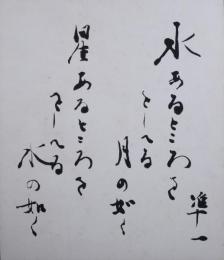 水あるところを
をしへる
月の如く
星あるところを
をしへる
水の如く
準一